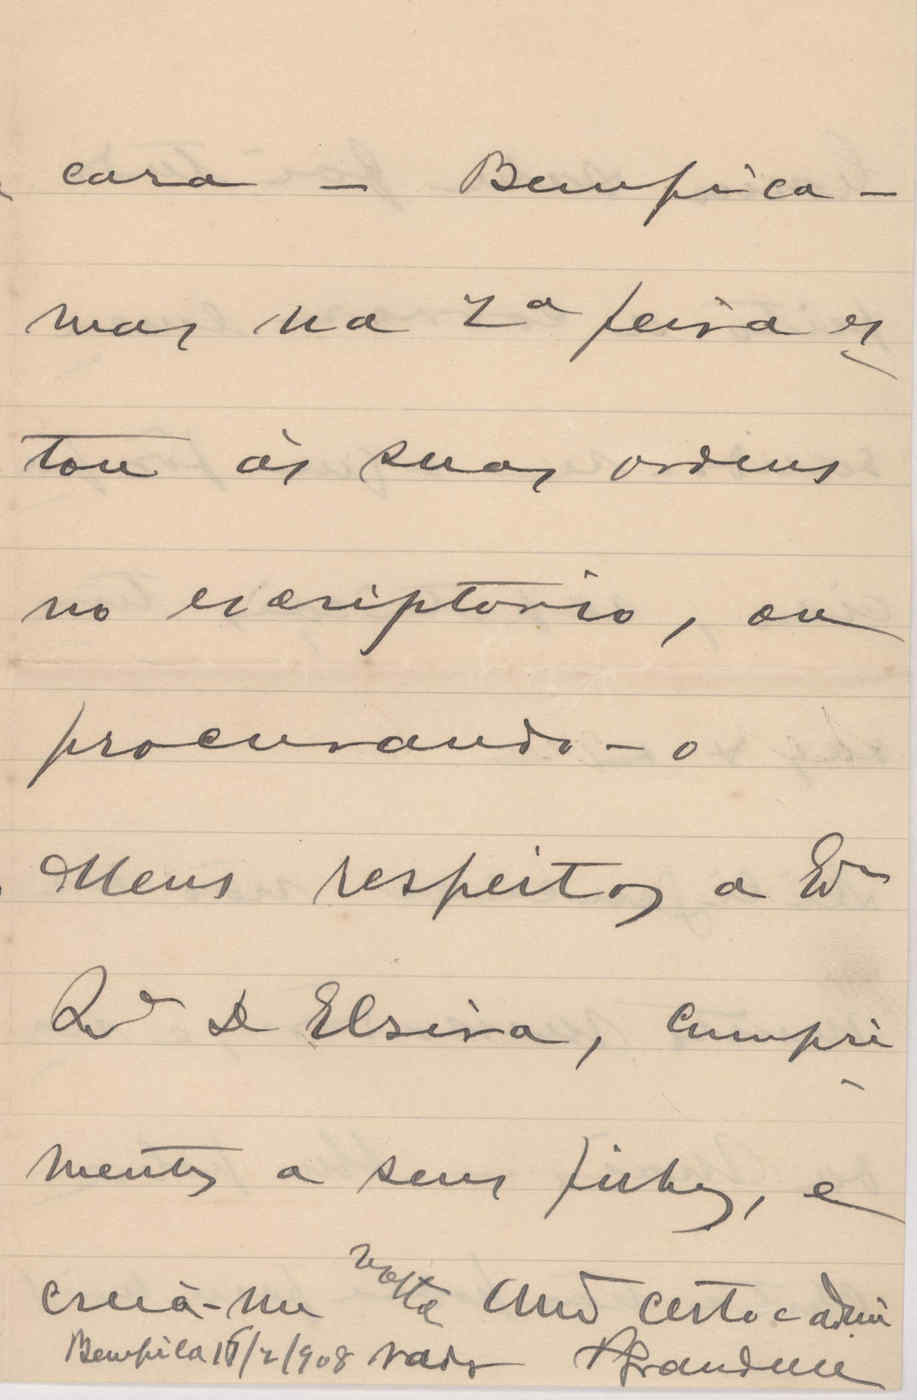 casa — Bemfica —
mas na 2ª feira es
tou ás suas ordens
no escriptorio, ou
procurando-o
Meus respeitos a
D Elsira, cumpri
mentos a seus filhos, e
creia-me certo e admi
Bemfica /2/908 rador